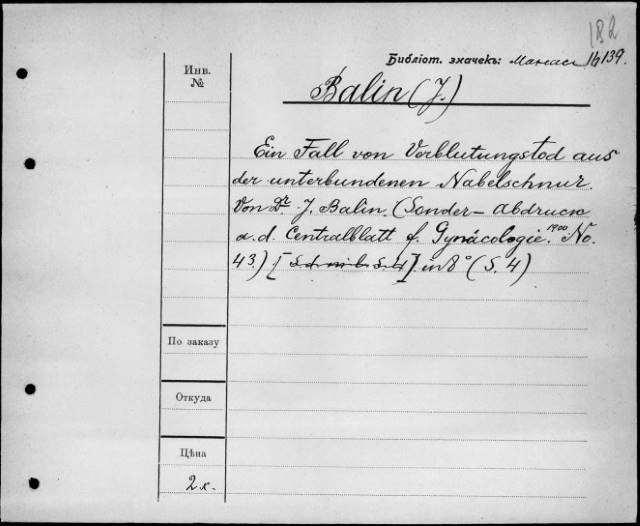 182
Библіот. значекъ: Манасс 16139.
Инв.
№
Balin (J.)
Ein Fall von Verblutungstod aus
der unterbundenen Nabelschnur.
Von Dr. J. Balin. (Sonder-Abdruck
a. d. Centralblatt f. Gynäcologie. 1900 No.
43.) [] in 8° (S. 4)
По заказу
Откуда
Цѣна
2 к.